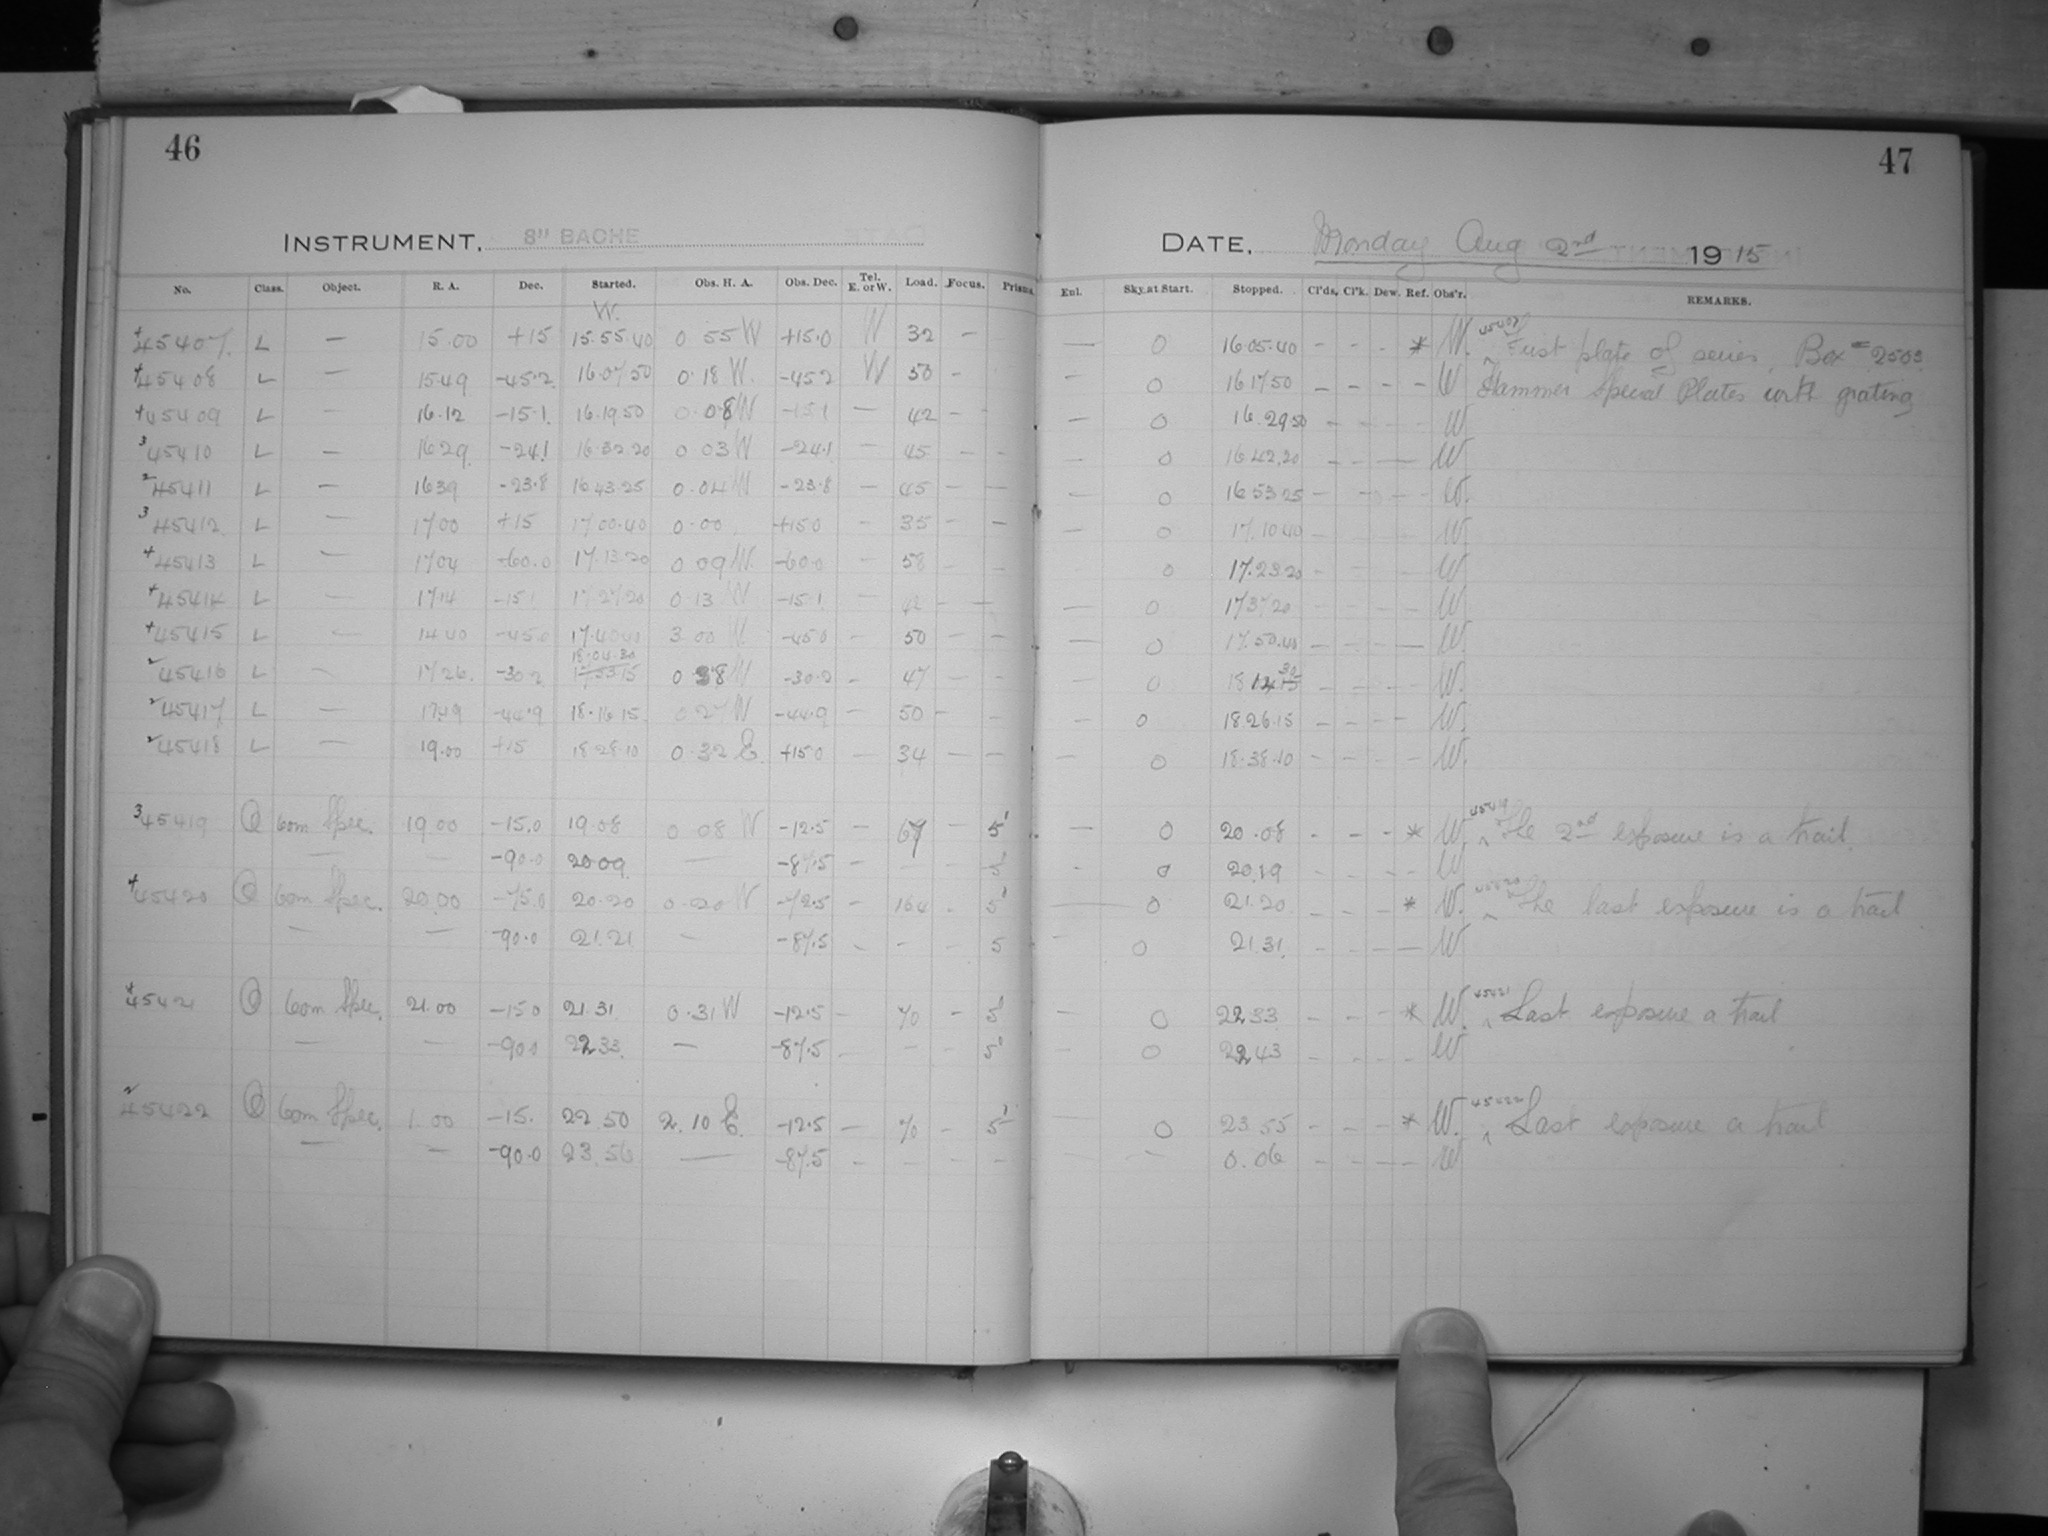 46
47
INSTRUMENT. 8" BACHE
DATE. Monday Aug 2nd 1915
No. Class. Object. R. A. Dec. Started. Obs. H. A. Obs. Dec. Tel. E. or W. Load. Focus. Prism. Eul. Sky at Start. Stopped. Cl'ds, Cl'k. Dew. Ref. Obs'r. REMARKS.
W.
+ 45407 L — 15.00 +15 15.55.40 0 55 W +15.0 W 32 – — 0 16.05.40 - - - * W. 45407 ^ First plate of series, Box # 2503
+ 45408 L — 15.49 -45.2 16.07.50 0.18 W. -45.2 W 50 - – 0 16.17.50 - - - - W Hammer Special Plates with grating
+ 45409 L — 16.12 -15.1 16.19.50 0.08 W -15.1 — 42 - - — 0 16.29.50 - - - - W
3 45410 L — 16.29 -24.1 16.32.20 0 03 W -24.1 — 45 - - — 0 16.42.20 - - — W
2 45411 L — 16.39 -23.8 16.43.25 0.04 W -23.8 — 45 - — — 0 16.53.25 - - - - W.
3 45412 L — 17.00 +15 17.00.40 0.00 +15.0 - 35 - - — 0 17.10.40 - - - - W.
+ 45413 L — 17.04 -60.0 17.13.20 0 09 W. -60.0 — 58 - - 0 17.23.20 - - - - W
+ 45414 L — 17.14 -15.1 17.27.20 0.13 W -15.1 — 42 - — — 0 17.37.20 - - - - W
+ 45415 L — 14.40 -45.0 17.40.40 3.00 W -45.0 - 50 - - — 0 17.50.40 - - - - W.
18.04.30
2 45416 L - 17.26. -30.2 17.53.15 0 38 W -30.2 - 47 - - — 0 18 14 30 - - - - W.
2 45417 L — 17.49 -44.9 18.16.15 0.27 W -44.9 — 50 - - — 0 18.26.15 - - - - W.
2 45418 L — 19.00 +15 18.28.10 0.32 E. +15.0 — 34 — — — 0 18.38.10 - - - - W.
3 45419 Q Com Spec. 19 00 -15.0 19.08 0 08 W -12.5 — 67 - 5° — 0 20.08 - - - * W. 45419 ^ The 2nd exposure is a trail.
— — -90.0 20 09 — -87.5 — - - 5° - 0 20.19 - - - - W
+ 45420 Q Com Spec. 20.00 -75.0 20.20 0.20 W -72.5 - 164 - 5° — 0 21.20 - - - * W. 45420 ^ The last exposure is a trail
— — -90.0 21.21 — -87.5 - - - 5 - 0 21.31. - - - — W
+ 45421 Q Com Spec. 21.00 -15.0 21.31. 0.31 W -12.5 - 70 - 5° — 0 22 33 - - - * W. 45421 ^ Last exposure a trail
— — -90.0 22 33. — -87.5 — - - 5° — 0 22 43 - - - - W
2 45422 Q Com Spec. 1.00 -15. 22 50 2.10 E. -12.5 — 70 - 5° — 0 23 55 - - - * W. 45422 ^ Last exposure a trail
— — -90.0 23.56 — -87.5 - - - - — — 0.06 - - — W